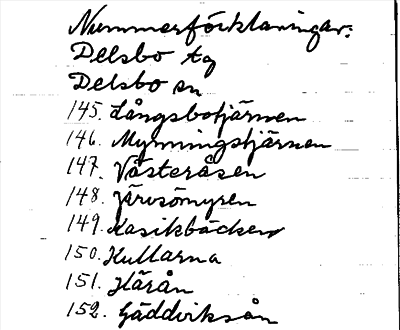 Nummerförklaringar:
Delsbo tg
Delsbo sn
145. Långsbotjärnen
146. Mymningstjärnen
147. Västeråsen
148. Järvsömyren
149. Kasikbäcken
150. Kullarna
151. Härån
152. Gäddviksån